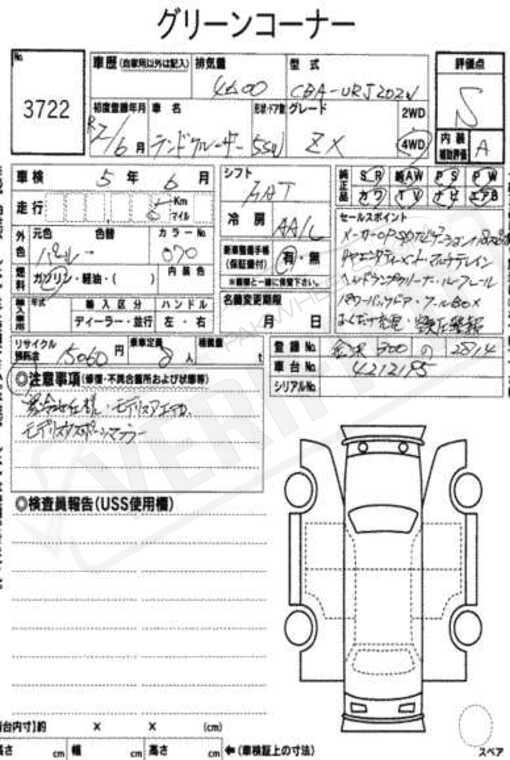 グリーンコーナー
No. 3722
車歴 (自家用以外は記入) 排気量 4600 型式 CBA-URJ202W
評価点 S
初度登録年月 R2/6月 車名 ランドクルーザー 形状・ドア数 5SW グレード ZX 2WD 4WD
内装補助評価 A
車検 5年 6月
シフト AT
純正品 SR 純AW PS PW カワ TV ナビ エアB
走行 6 Km マイル
冷房 AAC
外色 元色 パール 色替 カラーNo. 070
セールスポイント
新車整備手帳 (保証書付) 有・無
※車検と一緒に保管下さい。
燃料 ガソリン・軽油・( ) 内装色
輸入車 年式 輸入区分 ハンドル
ディーラー・並行 左・右
名義変更期限
月 日
ヘッドランプクリーナー・ルーフレール
パワーバックドア・クールBOX
リサイクル預託金 15060円 乗車定員 8人 積載量 t
登録No. 金沢 300 の 2814
車台No. 4212185
シリアルNo.
◎注意事項 (修復・不具合箇所および状態等)
寒冷地仕様・モデリスタエアロ
モデリスタスポーツマフラー
◎検査員報告(USS使用欄)
VERIFIED
台内寸】約 × × (cm)
高さ cm 幅 cm 高さ cm ←(車検証上の寸法)
スペア